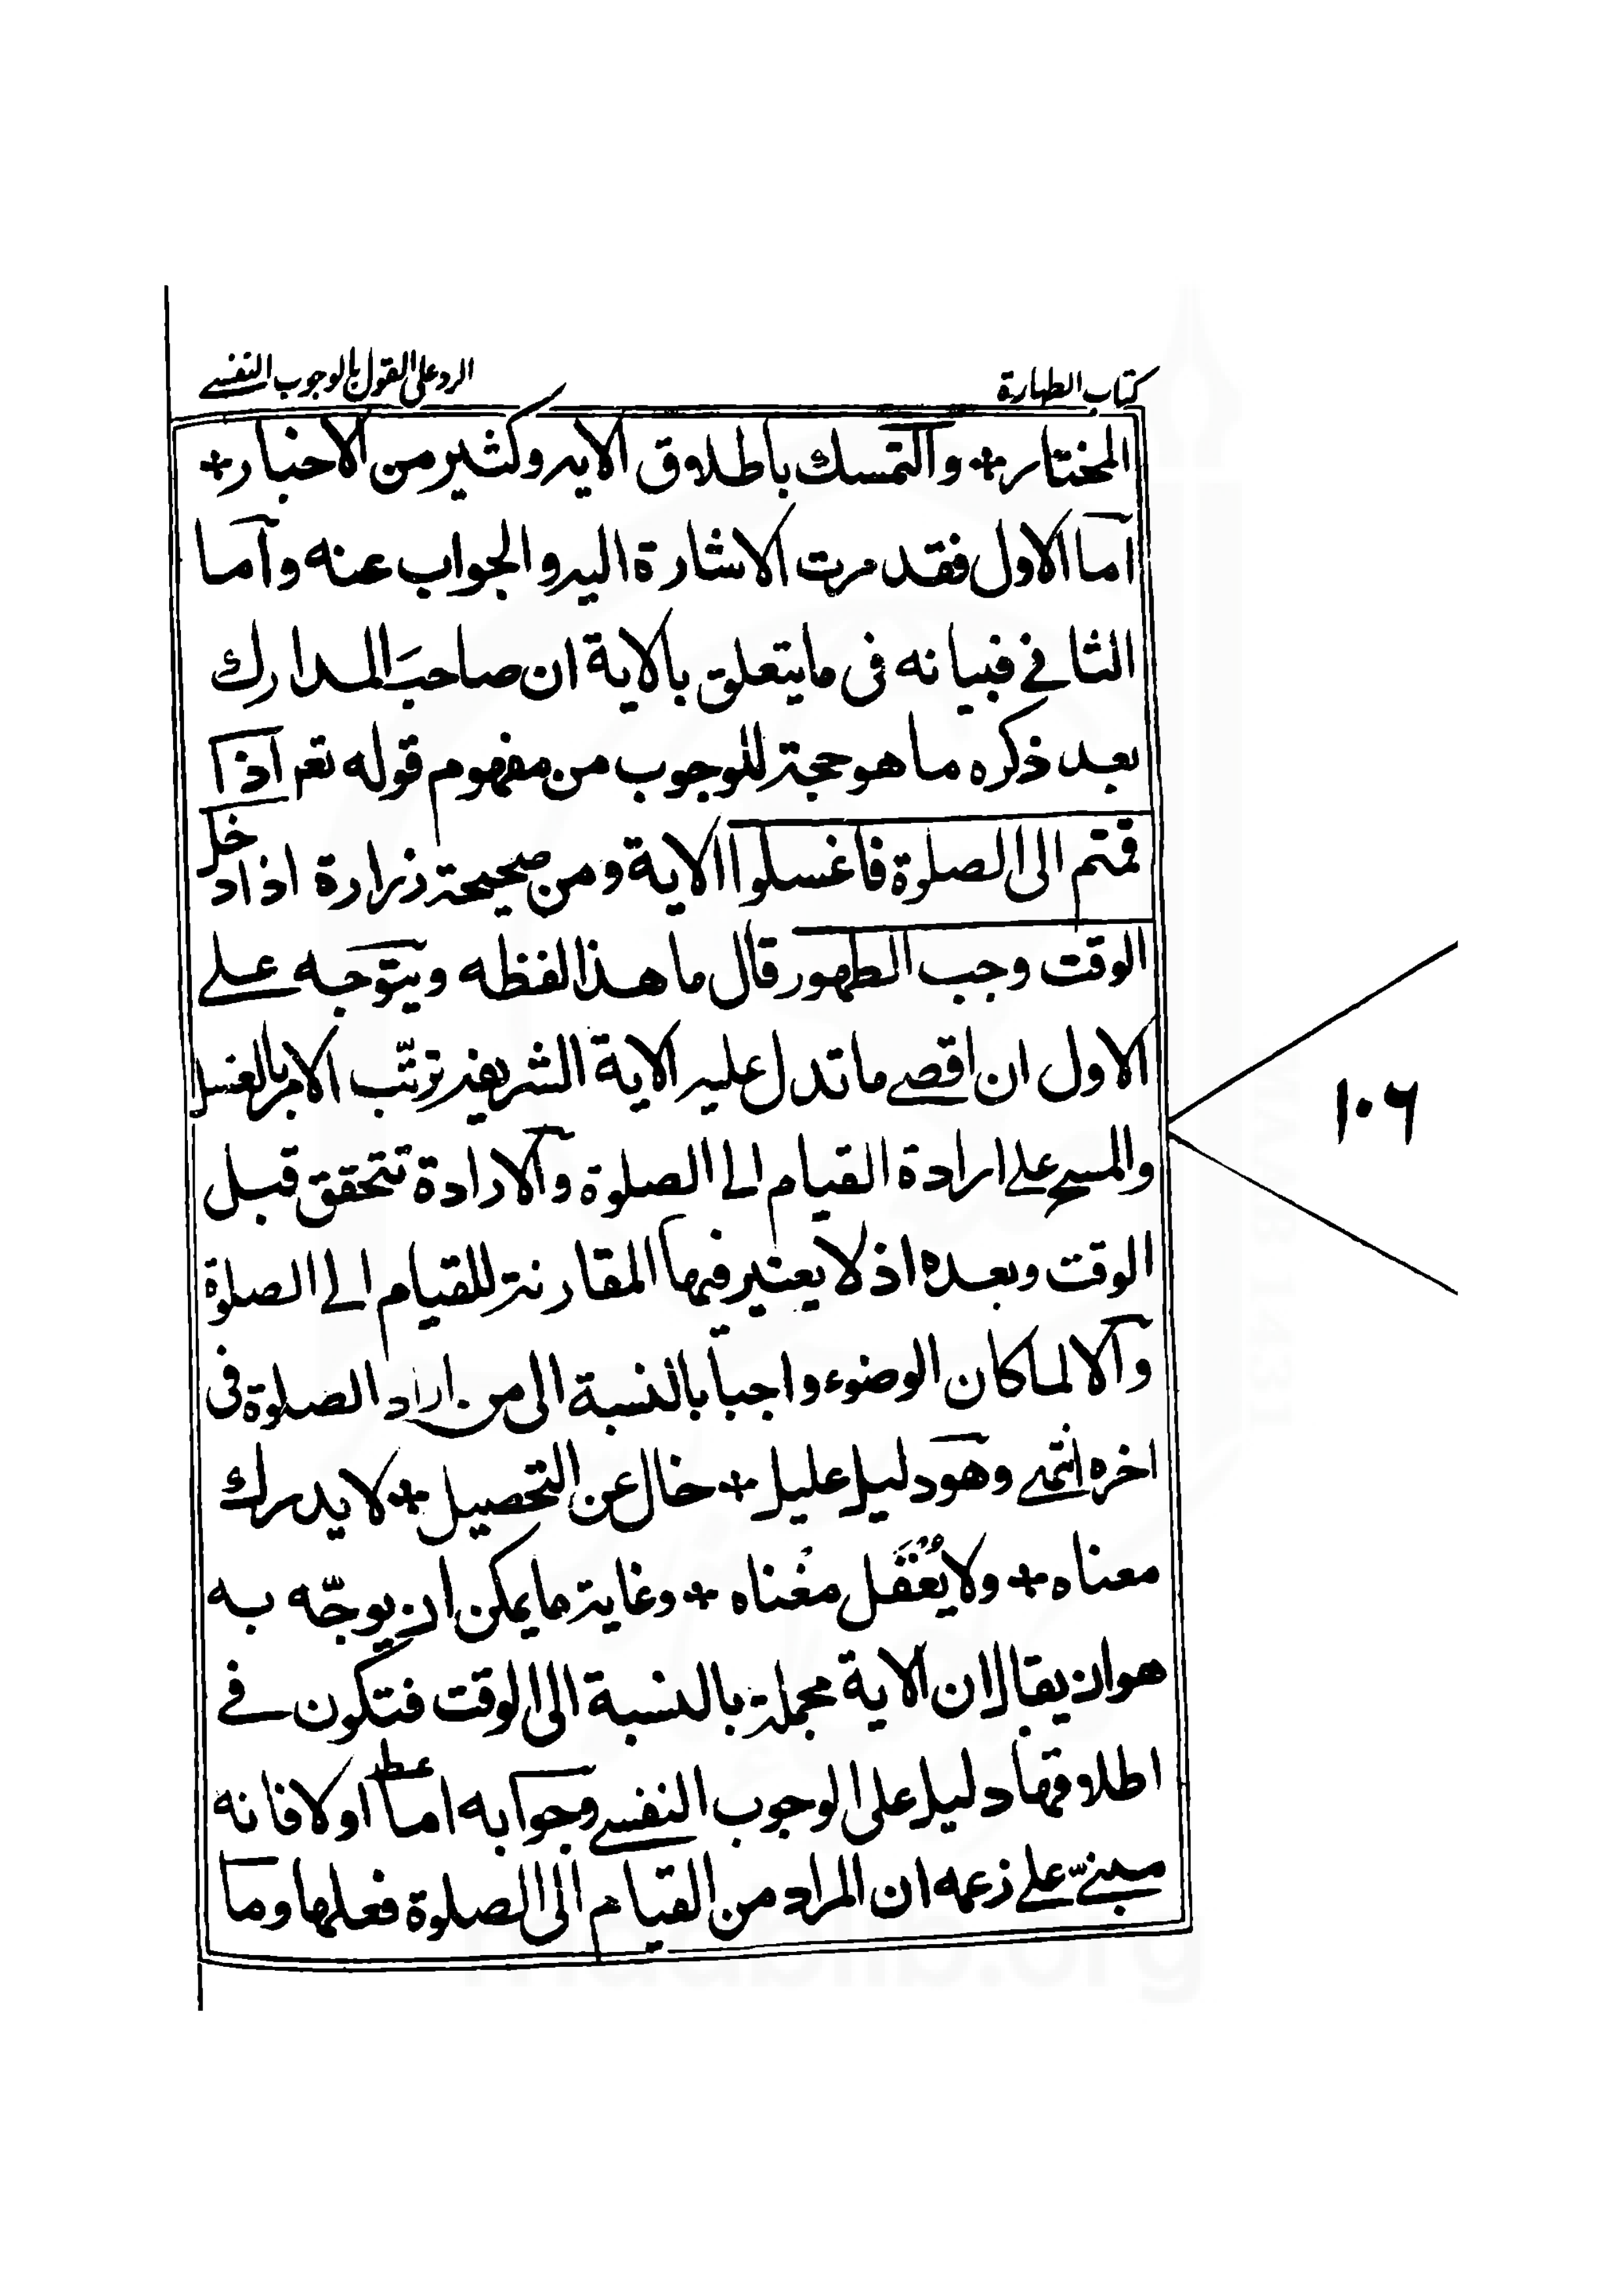 كتاب الطهارة
الرد على القول بالوجوب النفسے
المختار + والتمسك باطلاق الايه وكثير من الاخبار +
اما الاول فقد مرت الاشارة اليه والجواب عنه واما
الثانے فبيانه فى ما يتعلق بالاية ان صاحب المدارك
بعد ذكره ما هو حجة للوجوب من مفهوم قوله تعم اذا
قمتم الى الصلوة فاغسلوا الاية ومن صحيحة زرارة اذا دخل
الوقت وجب الطهور قال ما هذا لفظه ويتوجه علے
الاول ان اقصے ما تدل عليه الاية الشريفة ترتّب الامر بالغسل
والمسح علے ارادة القيام الے الصلوة والارادة تتحقق قبل
الوقت وبعده اذ لا يعتبر فيها المقارنة للقيام الے الصلوة
والا لما كان الوضوء واجبا بالنسبة الى من اراد الصلوة فى
اخره انتهے وهو دليل عليل + خال عن التحصيل + لا يدرك
معناه + ولا يُعْقَل مغناه + وغاية ما يمكن ان يوجّه به
هو ان يقال ان الاية مجملة بالنسبة الى الوقت فتكون فے
اطلاقها دليل على الوجوب النفسے وجوابه اما اولا فانه
مبنےّ علے زعمه ان المراد من القيام الى الصلوة فعلها وما
١٠٦
maablib.org